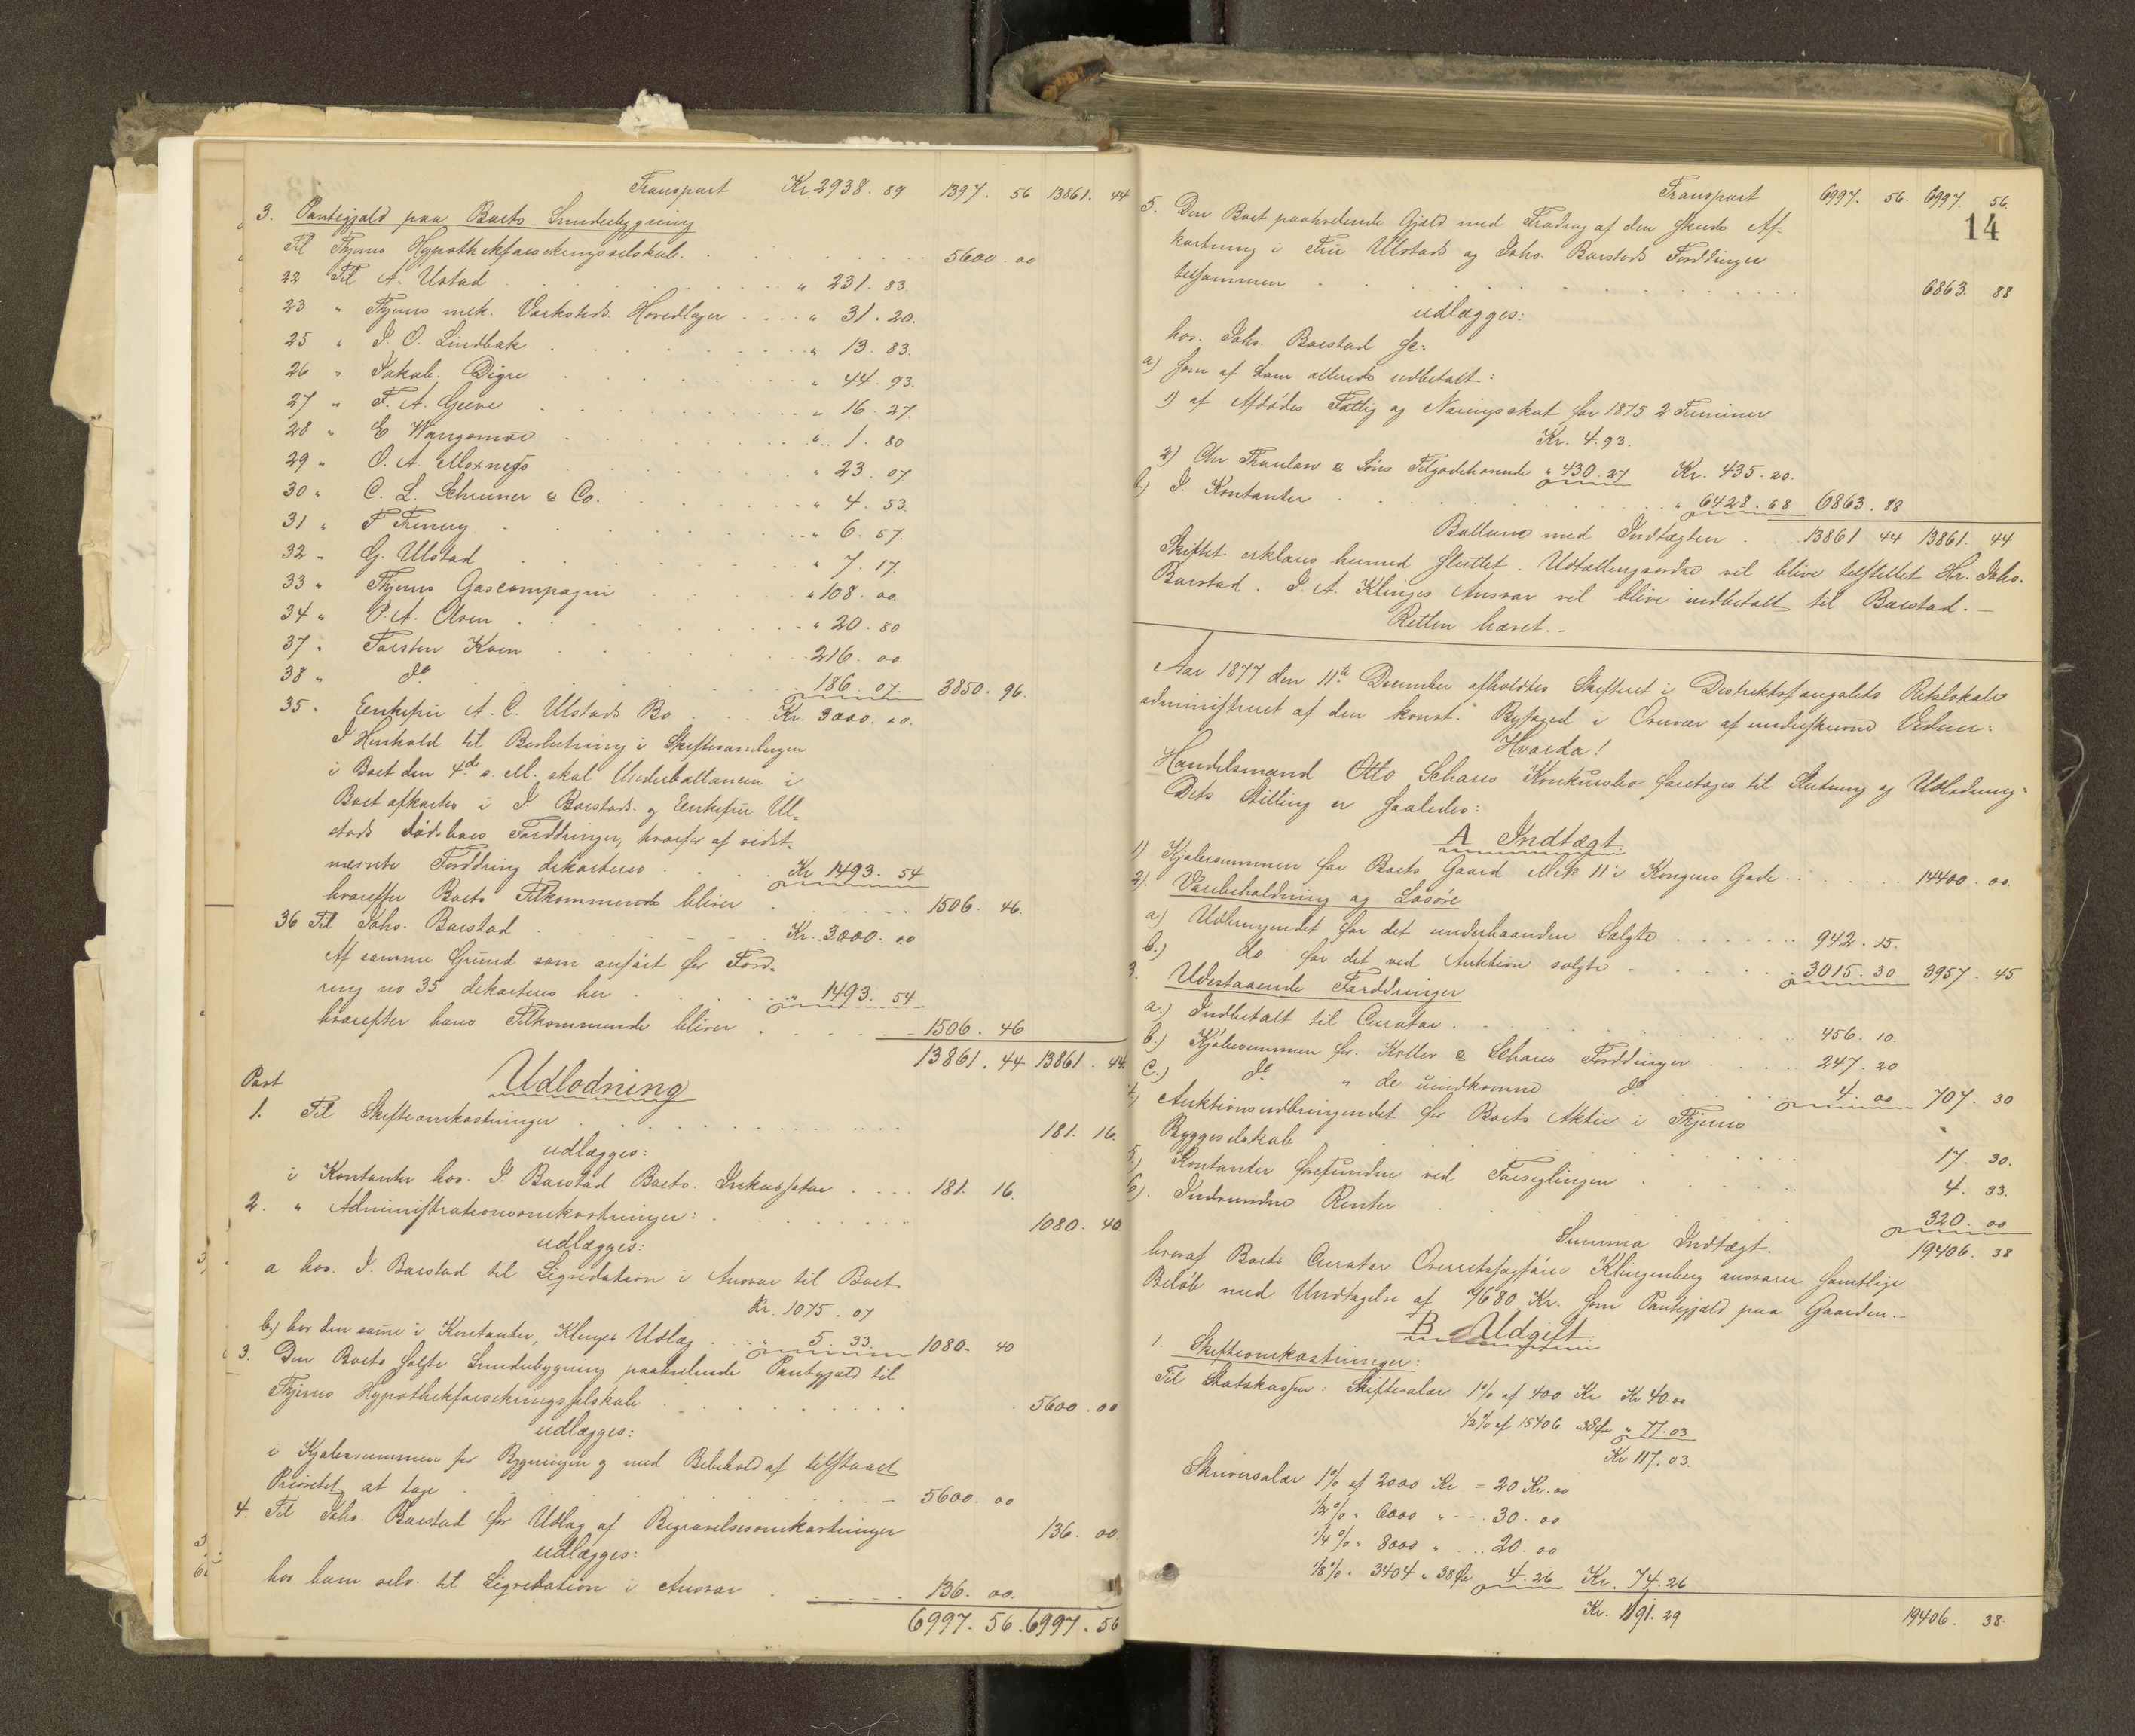 Transport Kr. 2938. 89 1397. 56 13861. 44
3. Pantegjæld paa Boets Sundebygning
Til Thjems Hypothekforsikringsselskab. . 5600. 00
22 Til A. Ustad " 231. 83.
23 " Thjems mek. Værksteds Hovedlager " 31. 20.
25 " I. O. Lindbak " 13. 83.
26 " Jakob Digre " 44. 93.
27 " F. A. Greve " 16. 27.
28 " E Wangsmoe " 1. 80
29 " O. A. Moxness " 23. 07.
30 " C. L. Schreiner & Co. " 4. 53.
31 " F " 6. 57.
32 " G. Ulstad " 7. 17.
33 " Thjems Gascompagni " 108. 00.
34 " P. A. Olsen " 20. 80
37 " Torsten Kven 216. 00.
38 " do 186. 07. 3850. 96.
35 " Enkefru A. C. Ulstads Bo Kr. 3000. 00.
I Henhold til Beslutning i Skiftesamlingen
i Boet den 4de d. M. skal Underballancen i
Boet afkortes i J Barstads og Enkefru Ul-
stads dødsboes Fordringer, hvorfor af sidst-
nævnte Fordring dekorteres Kr. 1493. 54
hvorefter Boets Tilkommende bliver 1506. 46.
36 Til Johs. Barstad Kr. 3000. 00
Af samme Grund som anført for Ford-
ring no 35 dekorteres her " 1493. 54
hvorefter hans Tilkommende bliver 1506. 46
13861. 44 13861. 44
Udlodning
Post
1. Til Skifteomkostninger 181. 16.
udlægges:
i Kontanter hos J. Barstad Boets Inkassator 181. 16.
2. " Administrationsomkostninger: 1080. 40
udlægges:
a hos J. Barstad til Liqvidation i Ansvar til Boet
Kr. 1075. 07
b.) hos den same i Kontanter, Klinges Udlæg " 5. 33. 1080. 40
3. Den Boets solgte Sundebygning paahvilende Pantegjæld til
Thjems Hypothekforsikringsselskab 5600. 00
udlægges:
i Kjøbesummen for Bygningen og med Bibehold af tilstaaet
Prioritet at tage 5600. 00
4. Til Johs. Barstad for Udlæg af Begravelsesomkostninger 136. 00.
udlægges:
hos ham selv til Liqvidation i Ansvar 136. 00.
6997. 56. 6997. 56
14
Transport 6997. 56. 6997. 56.
5. Den Boet paahvilende Gjæld med Fradrag af den skeede Af-
kortning i Fru Ulstads og Johs. Barstads Fordringer
tilsammen 6863. 88
udlægges:
hos Johs. Barstad
a) som af ham allerede udbetalt:
1) af Afdødes Fattig og Næringsskat for 1875 2 Terminer
Kr. 4. 93.
2) Chr Thaulow & Søns Tilgodehavende " 430. 27 Kr. 435. 20.
b) I Kontanter " 6428. 68 6863. 88
Ballance med Indtægten 13861 44 13861. 44
Skiftet erklæres hermed sluttet. Udtællingsordre vil blive tilstillet Hr. Johs.
Barstad. I. A. Klinges Ansvar vil blive indbetalt til Barstad.-
Retten hævet.-
Aar 1877 den 11te December afholdtes Skifteret i Distriktsfængslets Retslokale
administreret af den konst. Byfoged i Overvær af underskrevne Vidner:
Hvorda!
Handelsmand Otto Schares Konkursbo foretages til Slutning og Udlodning-
Dets Stilling er saaledes:
A Indtægt
1) Kjøbesummen for Boets Gaard Mtr. No 11 i Kongens Gade 14400. 00.
2). Varebeholdning og Løsøre
a.) Udbringendet for det underhaanden Solgte 942. 15.
b.) do. for det ved Auktion solgte 3015. 30 3957. 45
3. Udestaaende Fordringer
a.) Indbetalt til Curator 456. 10.
b.) Kjøbesummen for Koller & Schares Fordringer 247. 20
c.) do " de uindkomne do 4. 00 707. 30
4.) Auktionsudbringendet for Boets Aktie i Thjems
Byggeselskab 17. 30.
5.) Kontanter forefundne ved Forseglingen 4. 33.
6). Indvundne Renter 320. 00
Summa Indtægt. 19406. 38
hvoraf Boets Curator Overretssagfører Klingenberg ansvarer samtlige
Beløb med Undtagelse af 7680 Kr. som Pantegjæld paa Gaarden.-
B Udgift
1. Skifteomkostninger:
Til Statskassen: Skiftesalær 1% af 400 Kr Kr 40. 00
1/2% af 15406 38 Øre " 77. 03
Kr 117. 03.
Skriversalær 1% af 2000 Kr = 20 Kr. 00
1/2% " 6000 " - - 30. 00
1/4% " 8000 " . . 20. 00
1/8% " 3404 " 38 Øre 4. 26 Kr. 74. 26
Kr. 191. 29 19406. 38.